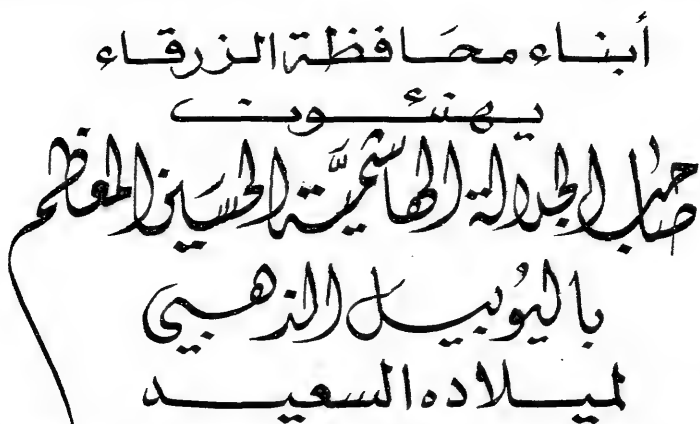 أبناء محَافظة الزرقاء
يهنئون
صاحب الجلالة الهاشميَّة الحسَين المعظم
باليُوبيل الذهبي
لميلاده السعيد